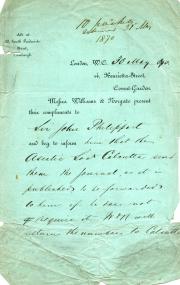 1870
Also at
20, South Frederick Street,
Edinburgh.
London, W.C. 30 May 1870
14, Henrietta-Street,
Covent-Garden.
Messrs Williams & Norgate present
their compliments to
Sir John Phillippart
and beg to inform him that the
Asiatic Soc. Calcutta send
them the journal as it is
published to be forwarded
to him if he does not
require it W&N will
return the numbers to Calcutta